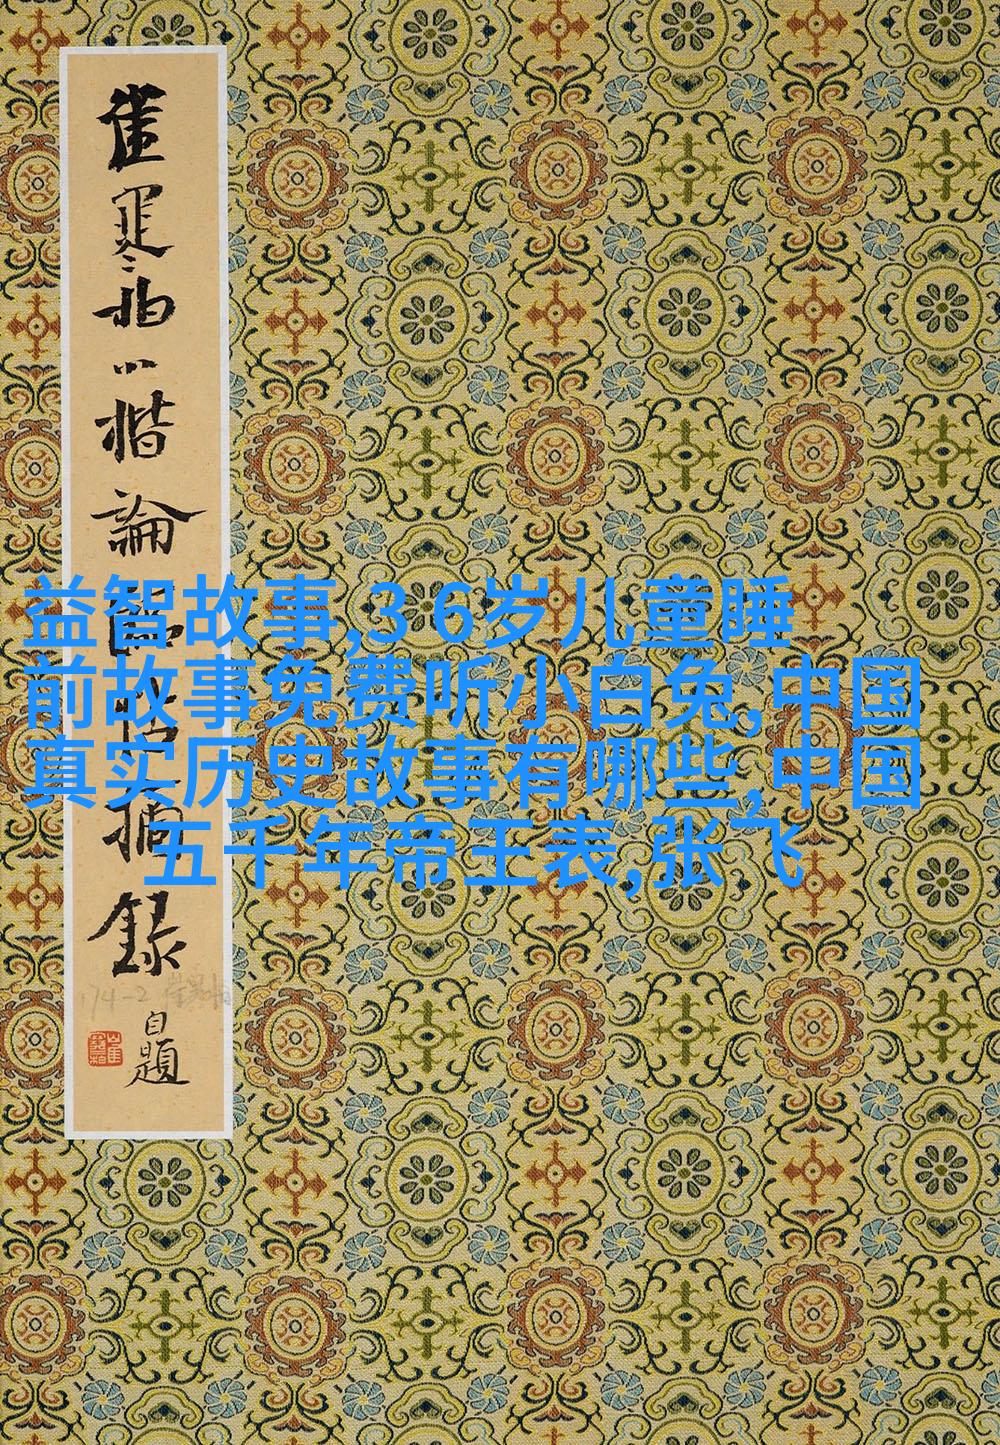 崔柏小楷論臨帖摘錄
自題
益智故事,3 6岁儿童睡
前故事免费听小白兔,中国
真实历史故事有哪些,中国
五千年帝王表,张飞